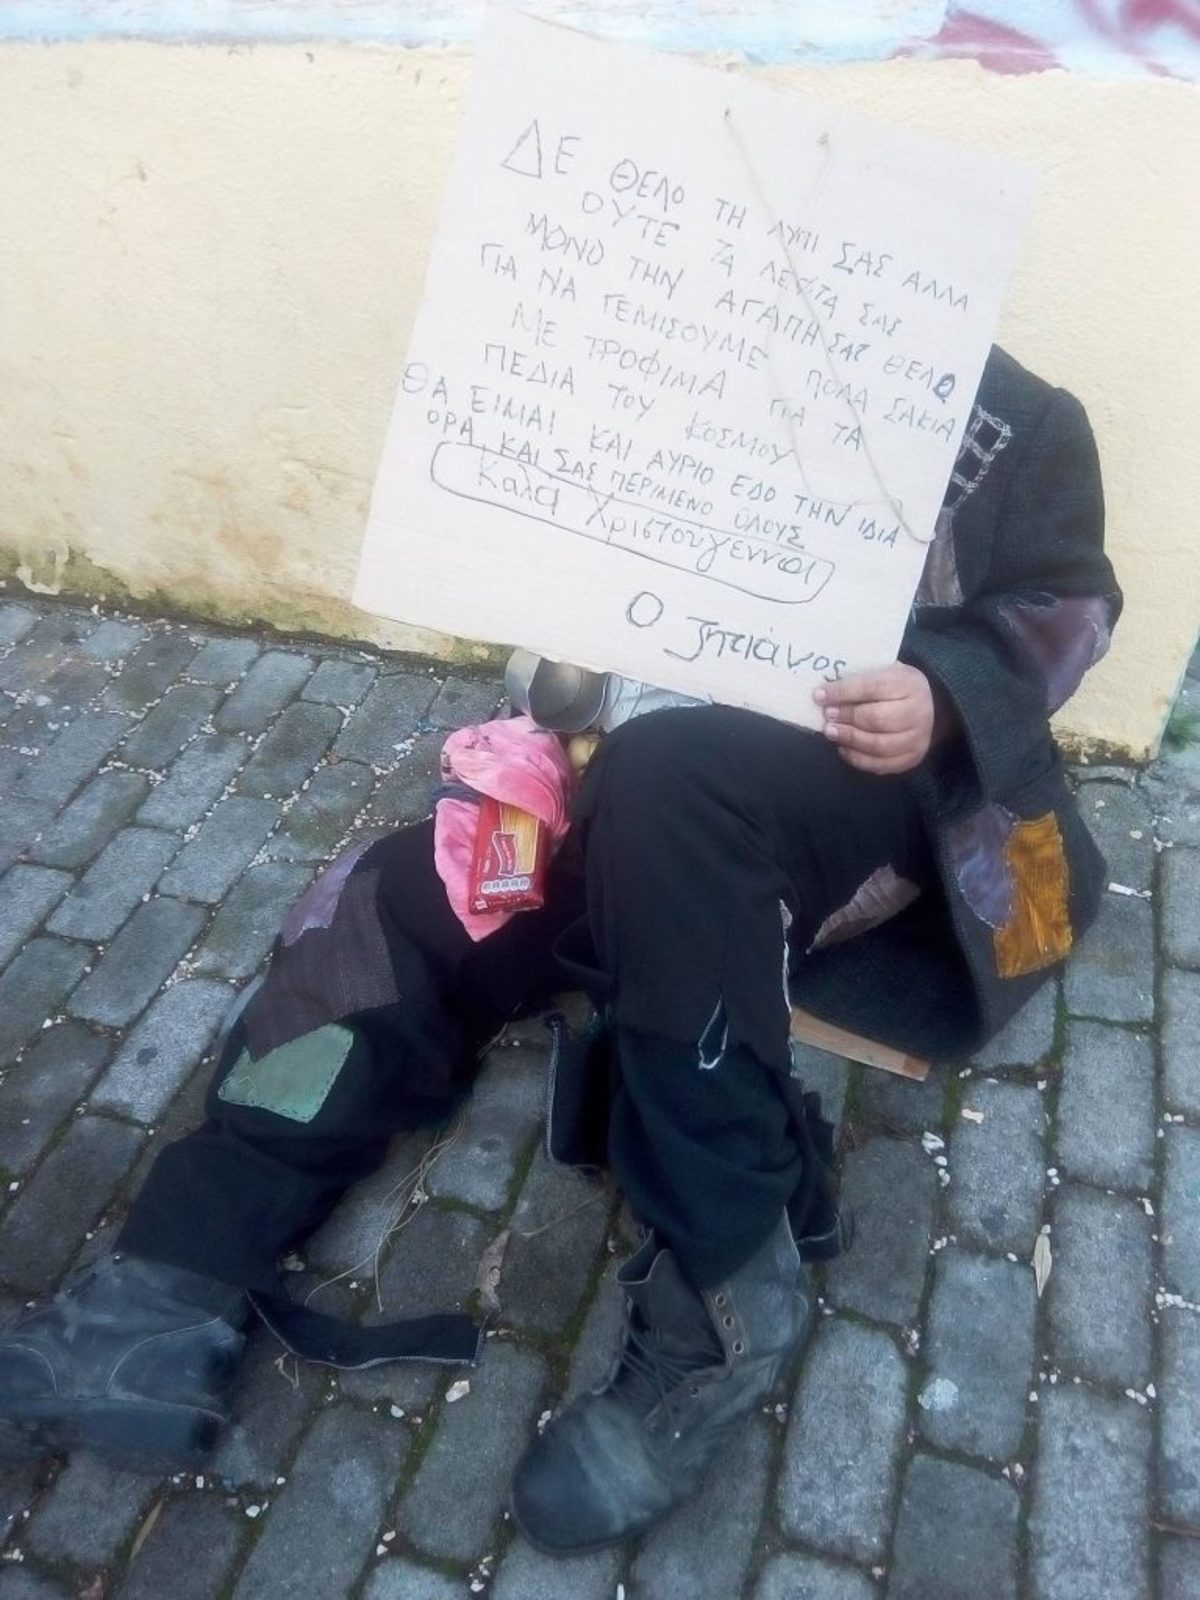 ΔΕ ΘΕΛΟ ΤΗ ΛΥΠΙ ΣΑΣ ΑΛΛΑ
ΟΥΤΕ ΤΑ ΛΕΦΤΑ ΣΑΣ
ΜΟΝΟ ΤΗΝ ΑΓΑΠΗ ΣΑΣ ΘΕΛΟ
ΓΙΑ ΝΑ ΓΕΜΙΣΟΥΜΕ ΠΟΛΑ ΣΑΚΙΑ
ΜΕ ΤΡΟΦΙΜΑ ΓΙΑ ΤΑ
ΠΕΔΙΑ ΤΟΥ ΚΟΣΜΟΥ
ΘΑ ΕΙΜΑΙ ΚΑΙ ΑΥΡΙΟ ΕΔΟ ΤΗΝ ΙΔΙΑ
ΟΡΑ ΚΑΙ ΣΑΣ ΠΕΡΙΜΕΝΟ ΟΛΟΥΣ
Καλά Χριστούγεννα
Ο ζητιάνος